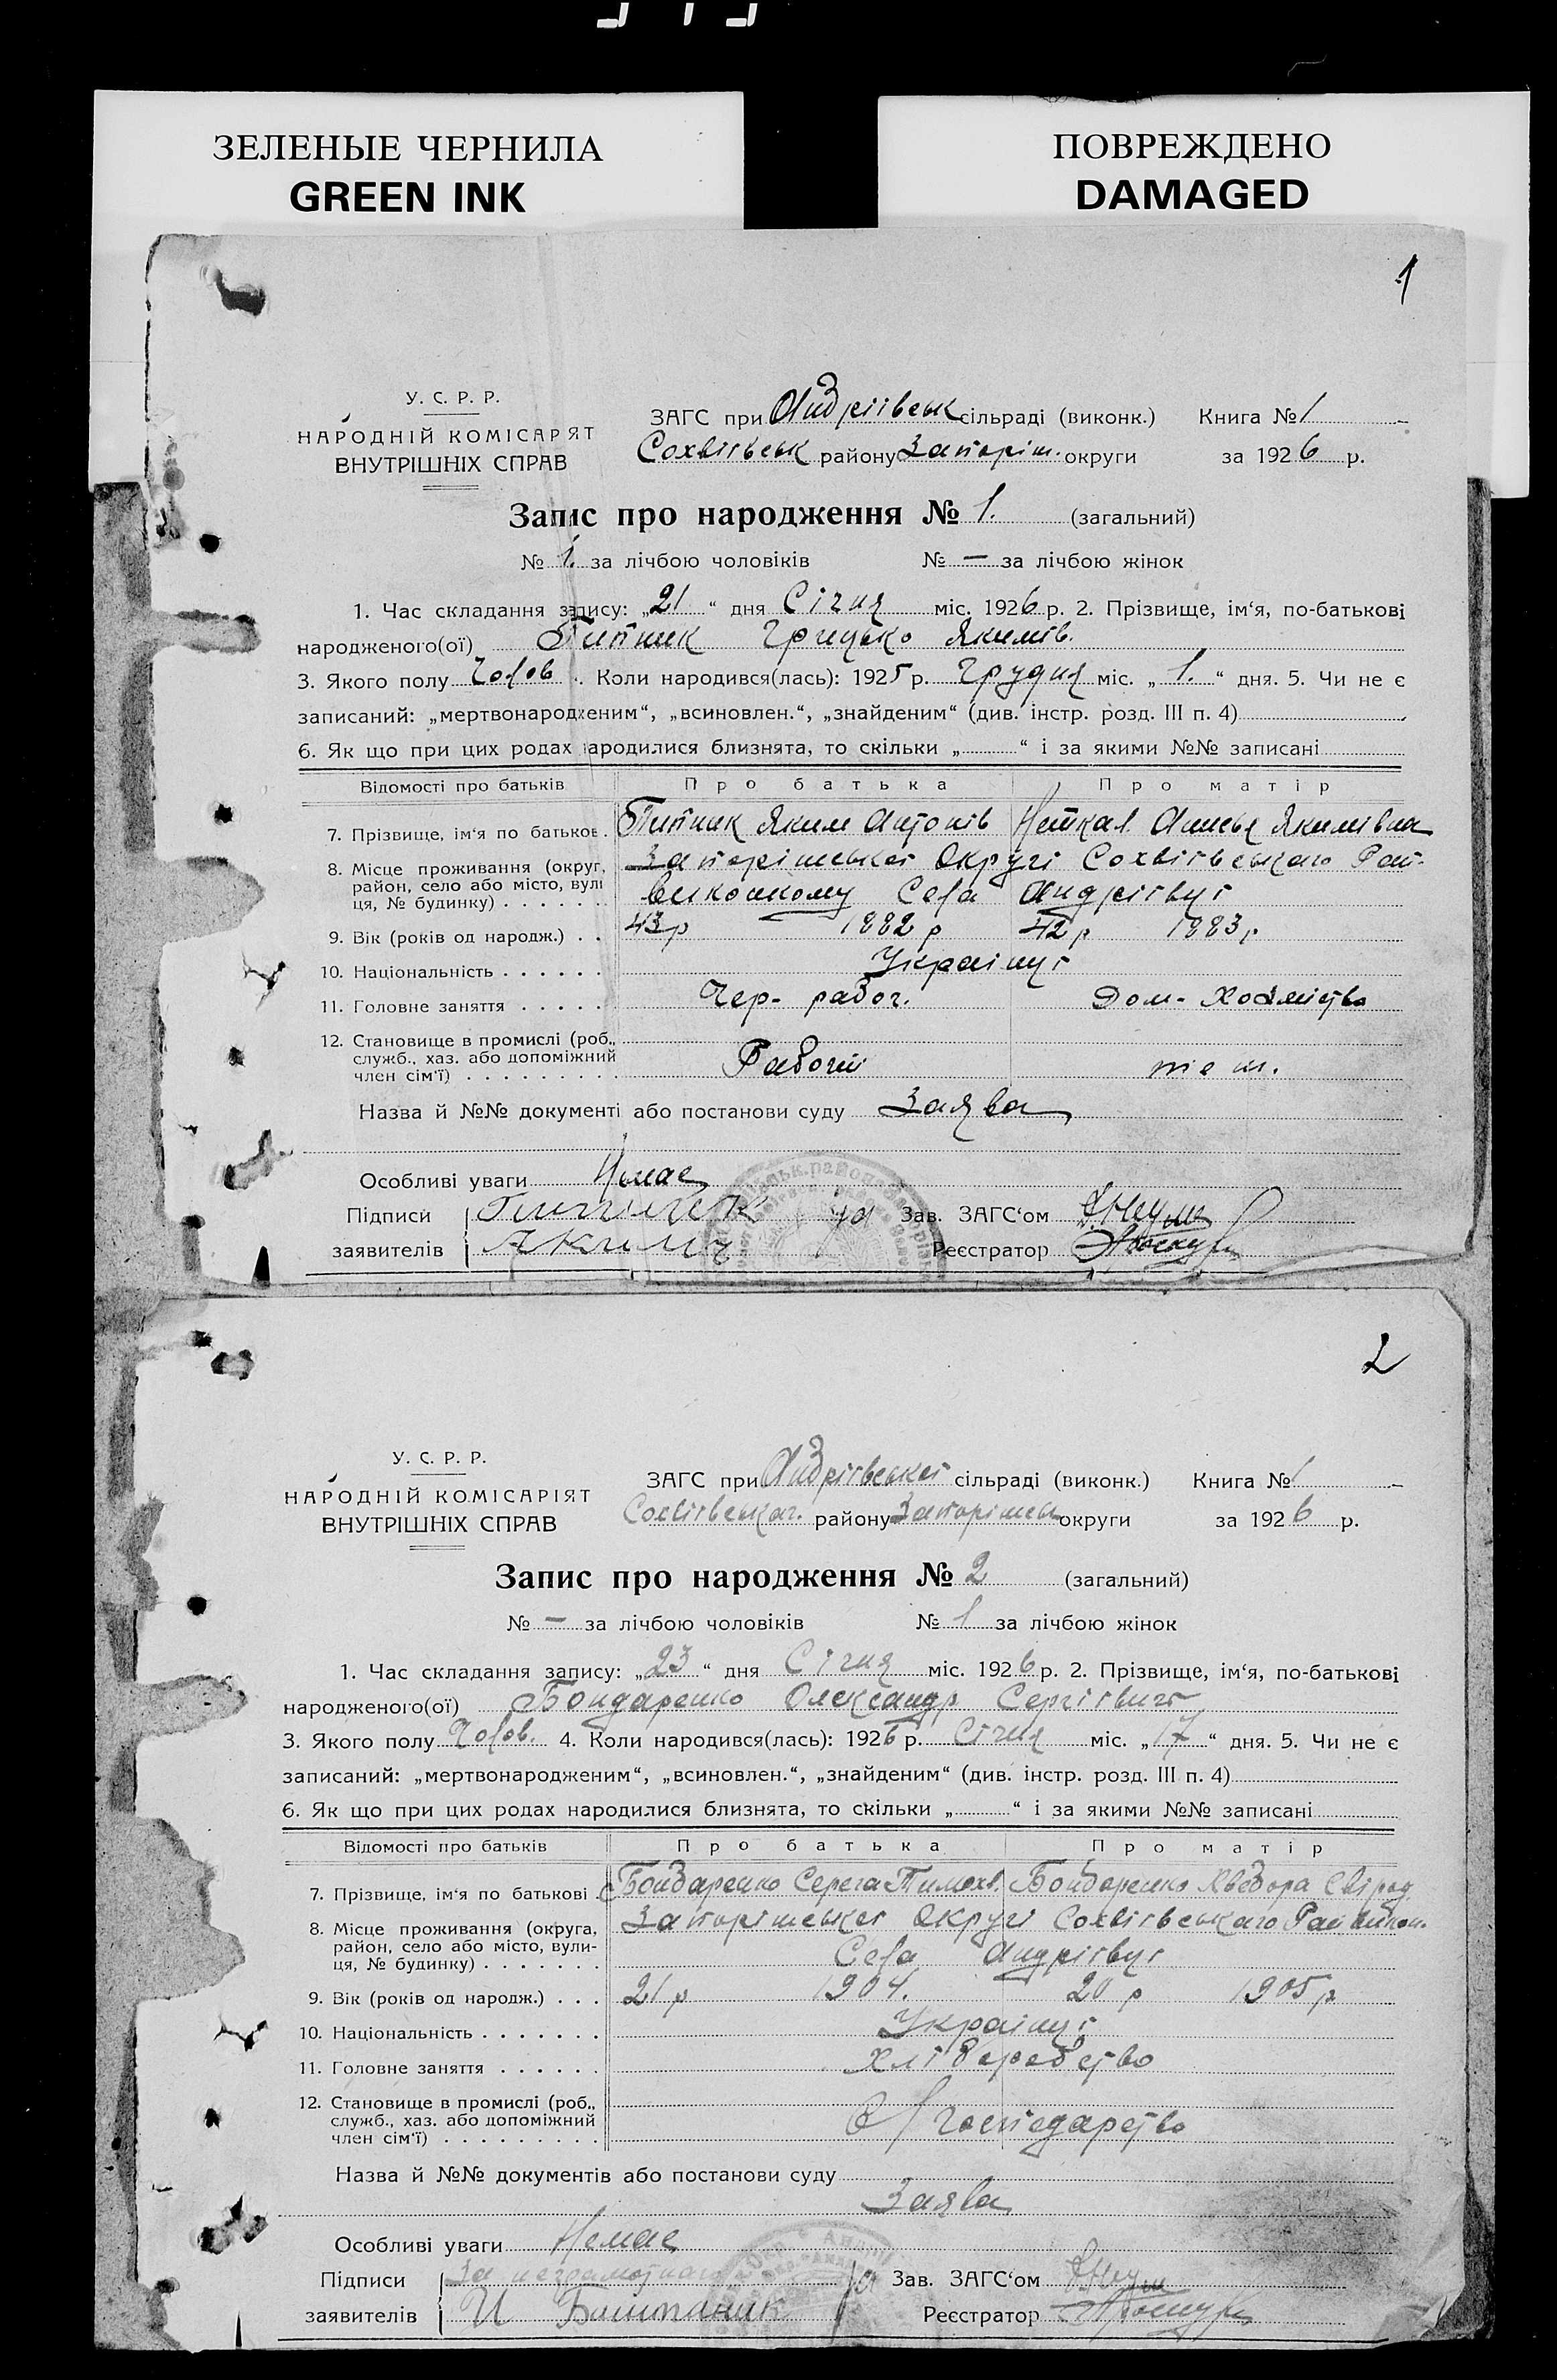 ЗЕЛЕНЫЕ ЧЕРНИЛА
GREEN INK
ПОВРЕЖДЕНО
DAMAGED
1
У. С. Р. Р.
НАРОДНІЙ КОМІСАРЯТ
ВНУТРІШНІХ СПРАВ
ЗАГС при Андріівськ сільраді (виконк.) Книга № 1
Сохвіївськ району Запоріш. округи за 1926 р.
Запис про народження № 1. (загальний)
№ 1. за лічбою чоловіків № — за лічбою жінок
1. Час складання запису: „21“ дня Січня міс. 1926 р. 2. Прізвище, ім‘я, по-батькові
народженого(ої) Грицько Якимів.
3. Якого полу Чолов. Коли народився(лась): 1925 р. Грудня міс. „1.“ дня. 5. Чи не є
записаний: „мертвонародженим“, „всиновлен.“, „знайденим“ (див. інстр. розд. III п. 4)
6. Як що при цих родах народилися близнята, то скільки „ “ і за якими №№ записані
Відомості про батьків Про батька Про матір
7. Прізвище, ім‘я по батьков. Яким Антонів Якимівна
8. Місце проживання (округ, район, село або місто, вулиця, № будинку) Запорішської Округі Сохвіівського Рай-
виконкому Села Андріівці
9. Вік (років од народж.) 43 р 1882 р 42 р 1883 р
10. Національність Українці
11. Головне заняття Чер- рабоч. Дом- Хозяиство
12. Становище в промислі (роб., служб., хаз. або допоміжний член сім‘ї) Рабочій
Назва й №№ документі або постанови суду Заява
Особливі уваги Немає
Підписи Зав. ЗАГС‘ом
заявителів Яким Реєстратор
2
У. С. Р. Р.
НАРОДНІЙ КОМІСАРІЯТ
ВНУТРІШНІХ СПРАВ
ЗАГС при Андріівської сільраді (виконк.) Книга № 1
Сохвіівськаг. району Запорішськ округи за 1926 р.
Запис про народження № 2 (загальний)
№ — за лічбою чоловіків № 1 за лічбою жінок
1. Час складання запису: „23“ дня Січня міс. 1926 р. 2. Прізвище, ім‘я, по-батькові
народженого(ої) Бондаренко Олександр Сергієвич
3. Якого полу Чолов. 4. Коли народився(лась): 1926 р. Січня міс. „17“ дня. 5. Чи не є
записаний: „мертвонародженим“, „всиновлен.“, „знайденим“ (див. інстр. розд. III п. 4)
6. Як що при цих родах народилися близнята, то скільки „ “ і за якими №№ записані
Відомості про батьків Про батька Про матір
7. Прізвище, ім‘я по батькові Бондаренко Серега Тимохв. Бондаренко Хведора Свірид
8. Місце проживання (округа, район, село або місто, вулиця, № будинку) Запорішської Округі Сохвіівського Райвикон.
Села Андріівці
9. Вік (років од народж.) 21 р 1904. 20 р 1905 р
10. Національність Українці
11. Головне заняття Хліборобство
12. Становище в промислі (роб., служб., хаз. або допоміжний член сім‘ї) господарство
Назва й №№ документів або постанови суду
Заява
Особливі уваги Немає
Підписи За неграмотнаго Зав. ЗАГС‘ом
заявителів И Баштаник Реєстратор